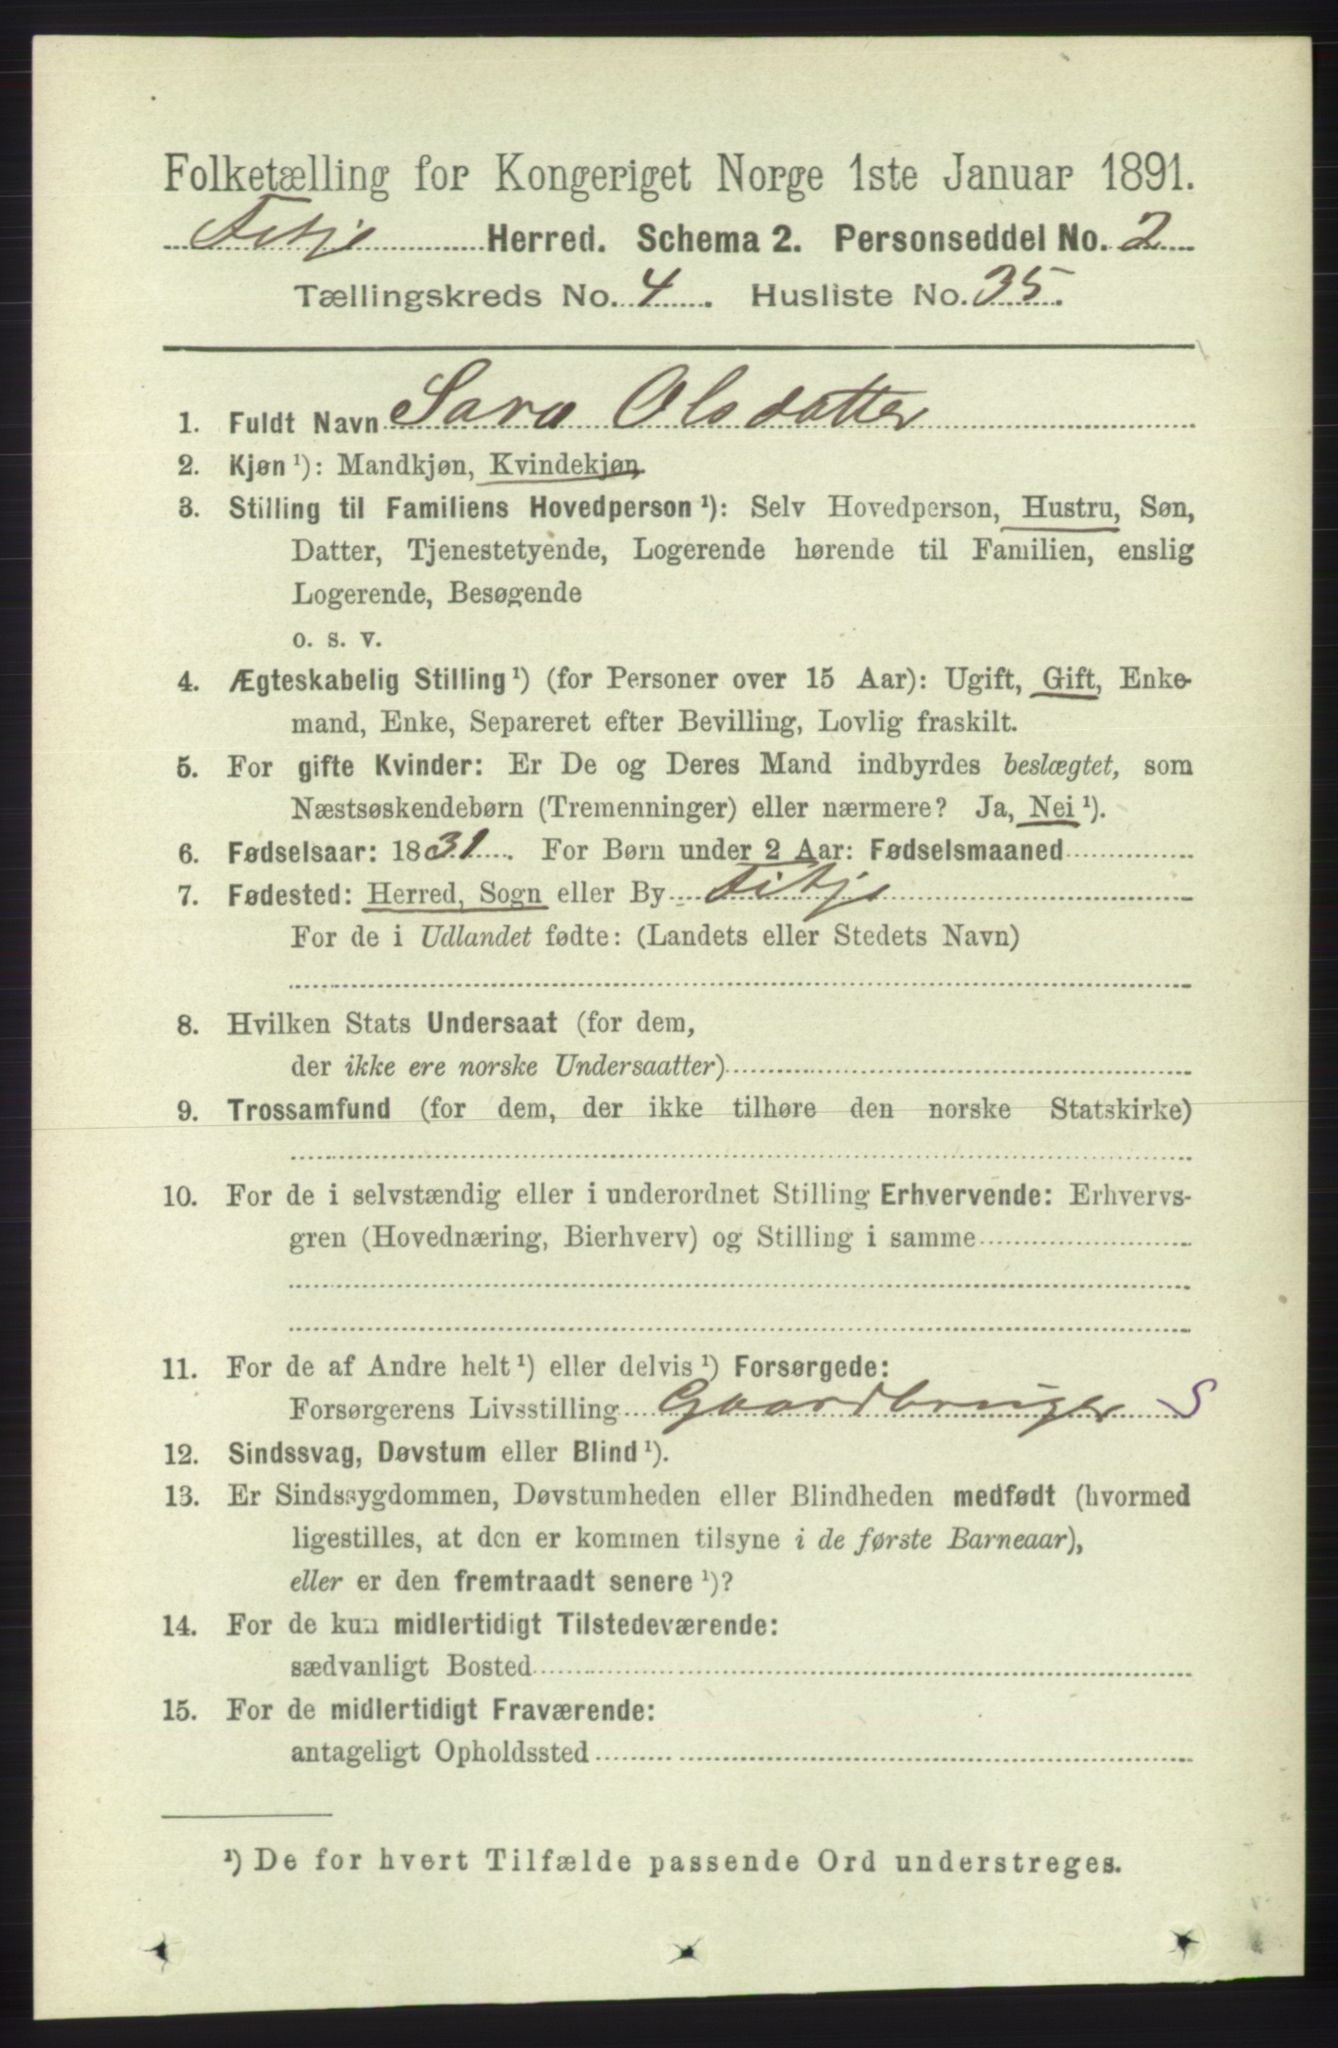 Folketælling for Kongeriget Norge 1ste Januar 1891.
Fitje Herred. Schema 2. Personseddel No. 2
Tællingskreds No. 4. Husliste No. 35.
1. Fuldt Navn Sara Olsdatter
2. Kjøn¹): Mandkjøn, Kvindekjøn.
3. Stilling til Familiens Hovedperson¹): Selv Hovedperson, Hustru, Søn,
Datter, Tjenestetyende, Logerende hørende til Familien, enslig
Logerende, Besøgende
o. s. v.
4. Ægteskabelig Stilling¹) (for Personer over 15 Aar): Ugift, Gift, Enke-
mand, Enke, Separeret efter Bevilling, Lovlig fraskilt.
5. For gifte Kvinder: Er De og Deres Mand indbyrdes beslægtet, som
Næstsøskendebørn (Tremenninger) eller nærmere? Ja, Nei¹).
6. Fødselsaar: 1831. For Børn under 2 Aar: Fødselsmaaned
7. Fødested: Herred, Sogn eller By Fitje
For de i Udlandet fødte: (Landets eller Stedets Navn)
8. Hvilken Stats Undersaat (for dem,
der ikke ere norske Undersaatter)
9. Trossamfund (for dem, der ikke tilhøre den norske Statskirke)
10. For de i selvstændig eller i underordnet Stilling Erhvervende: Erhvervs-
gren (Hovednæring, Bierhverv) og Stilling i samme
11. For de af Andre helt¹) eller delvis¹) Forsørgede:
Forsørgerens Livsstilling Gaardbruger S
12. Sindssvag, Døvstum eller Blind¹).
13. Er Sindssygdommen, Døvstumheden eller Blindheden medfødt (hvormed
ligestilles, at den er kommen tilsyne i de første Barneaar),
eller er den fremtraadt senere¹)?
14. For de kun midlertidigt Tilstedeværende:
sædvanligt Bosted
15. For de midlertidigt Fraværende:
antageligt Opholdssted
¹) De for hvert Tilfælde passende Ord understreges.